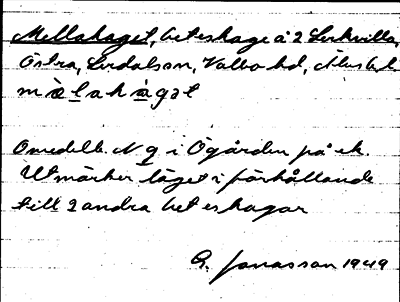 Mellahaget, beteshage å 2 Lerkvilla,
Östra, Lerdalssn, Valbo hd, Älvsb. l.
mèlahàgət
Omedelb. N g i Ögården på ek.
Utmärker läget i förhållande
till 2 andra beteshagar
G. Jonasson 1949